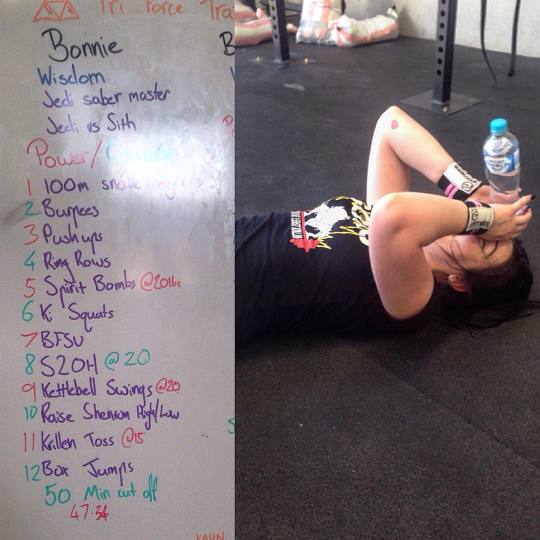 Tri Force Tra
Bonnie
Wisdom
Jedi saber master
Jedi vs Sith
Power/
1 100m
2 Burpees
3 Push ups
4 Ring Rows
5 Spirit Bombs @20lbs
6 Ki Squats
7 BFSU
8 S2OH @20
9 Kettlebell Swings @20
10 Raise Shenron High/Low
11 Krillen Toss @15
12 Box Jumps
50 Min cut off
47:34
KAHN